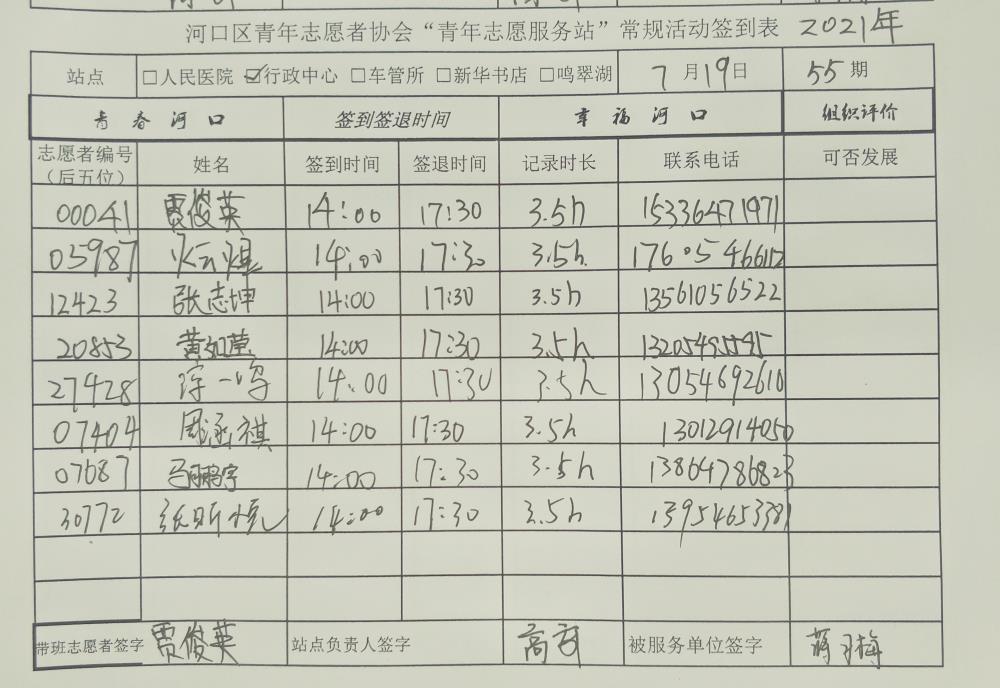 河口区青年志愿者协会“青年志愿服务站”常规活动签到表 2021年
站点 □人民医院 ☑行政中心 □车管所 □新华书店 □鸣翠湖 7月19日 55期
青春河口 签到签退时间 幸福河口 组织评价
志愿者编号（后五位） 姓名 签到时间 签退时间 记录时长 联系电话 可否发展
00041 贾俊英 14:00 17:30 3.5h 15336471971
05987 14:00 17:30 3.5h 17605466112
12423 张志坤 14:00 17:30 3.5h 13561056522
20853 14:00 17:30 3.5h 13205495595
27428 14:00 17:30 3.5h 13054692610
07404 周涵祺 14:00 17:30 3.5h 13012914050
07687 14:00 17:30 3.5h 13864786823
30772 14:00 17:30 3.5h 13954653381
带班志愿者签字 贾俊英 站点负责人签字 被服务单位签字